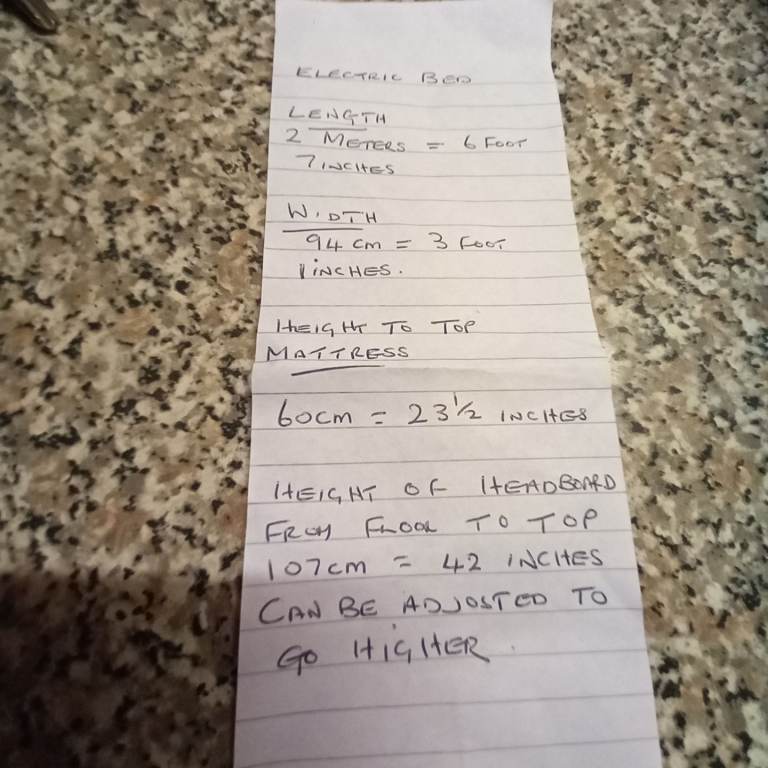 ELECTRIC BED
LENGTH
2 METERS = 6 FOOT
7 INCHES
WIDTH
94 cm = 3 FOOT
1 INCHES.
HEIGHT TO TOP
MATTRESS
60cm = 23 1/2 INCHES
HEIGHT OF HEADBOARD
FROM FLOOR TO TOP
107cm = 42 INCHES
CAN BE ADJUSTED TO
GO HIGHER.